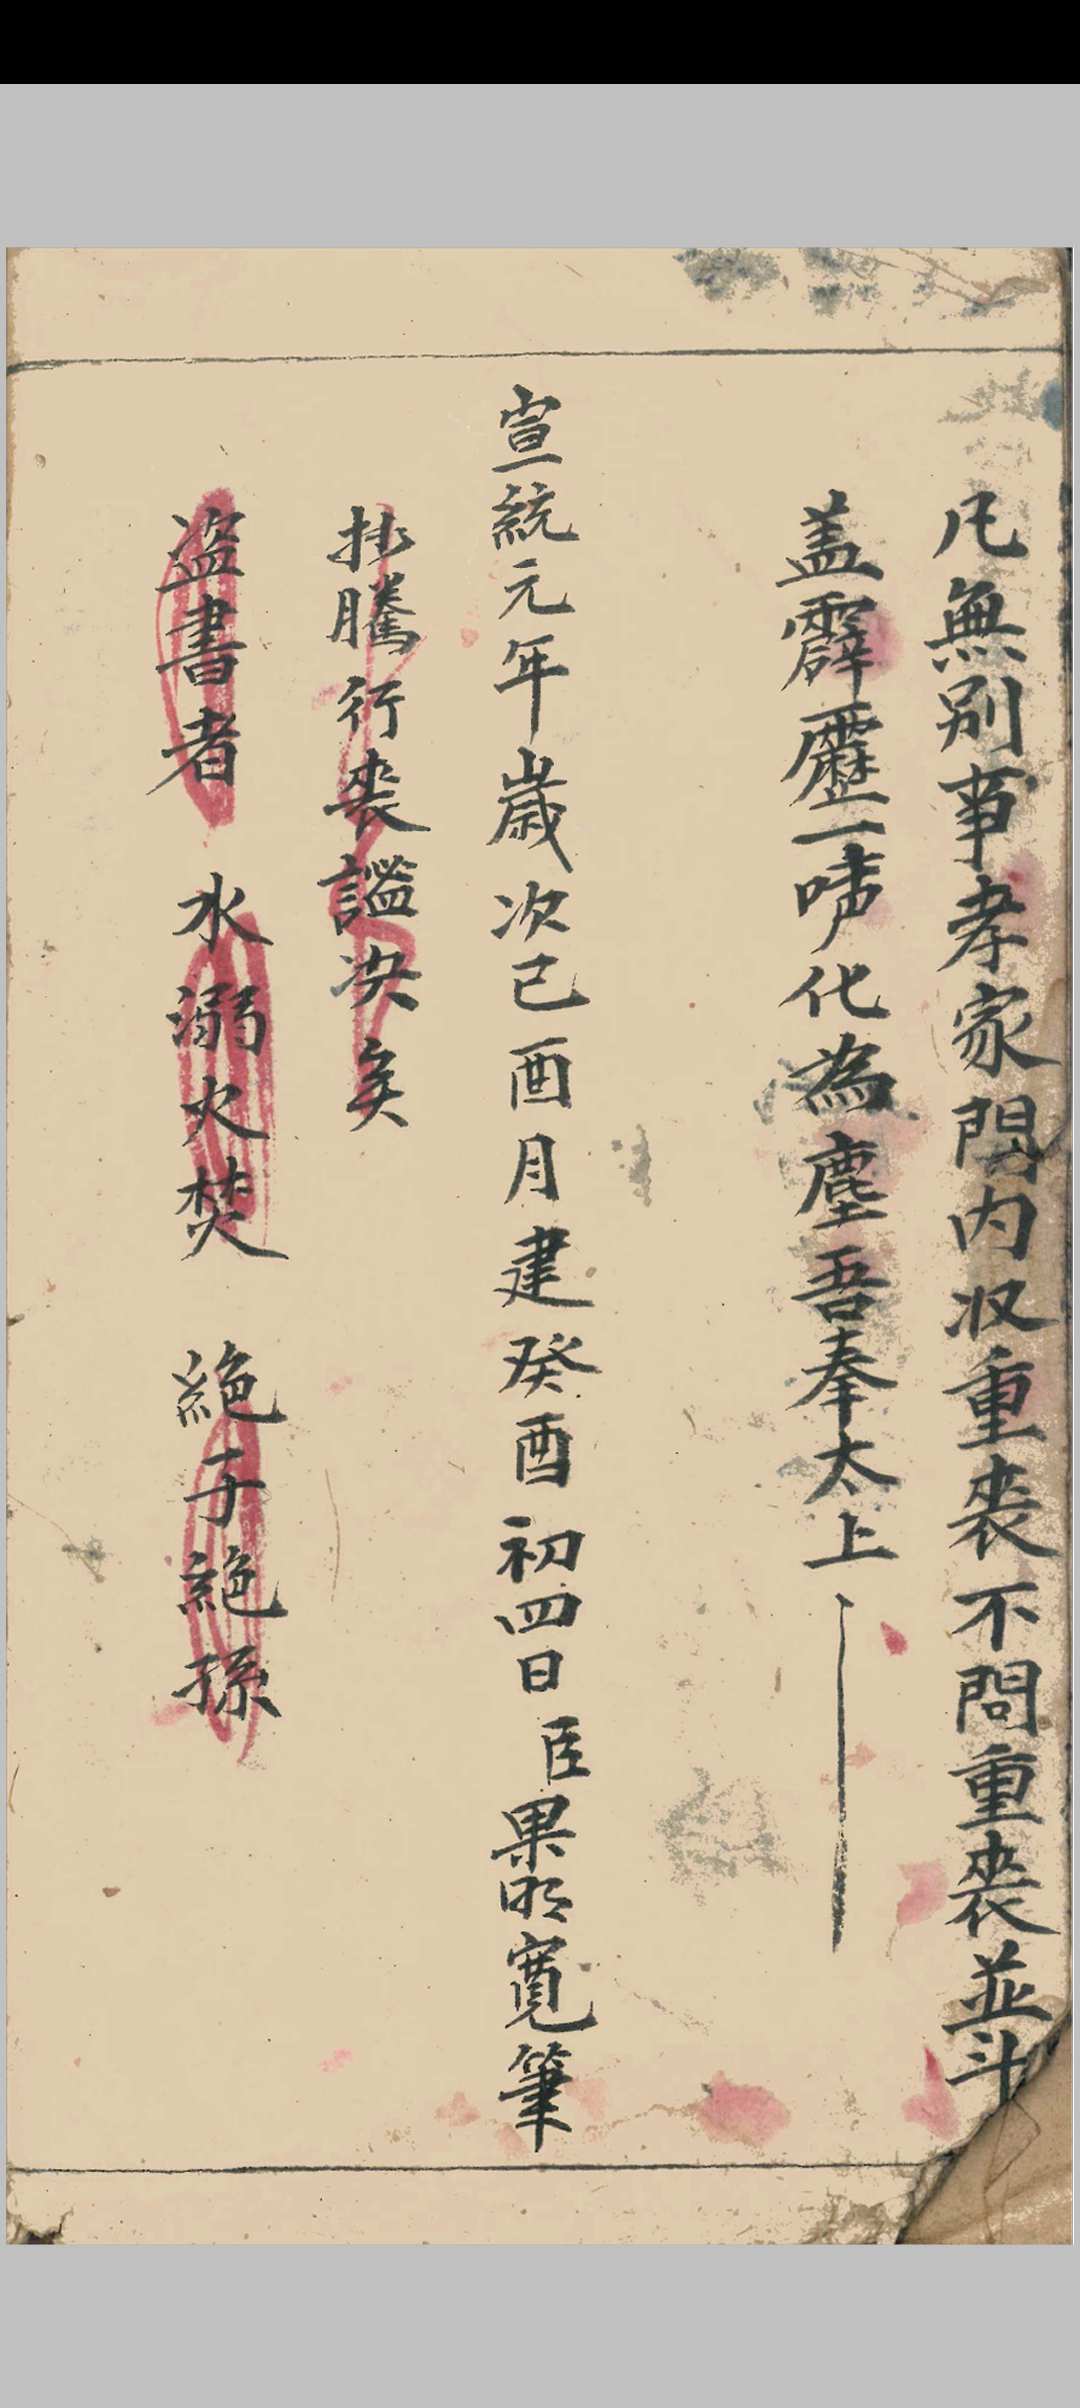 凡無別事孝家門内収重喪不問重喪並斗
盖霹靂一啨化為塵吾奉太上
宣統元年歲次己酉月建癸酉初四日臣果明寬筆
抄騰行喪謐决矣
盗書者 水溺火焚 絶子絶孫